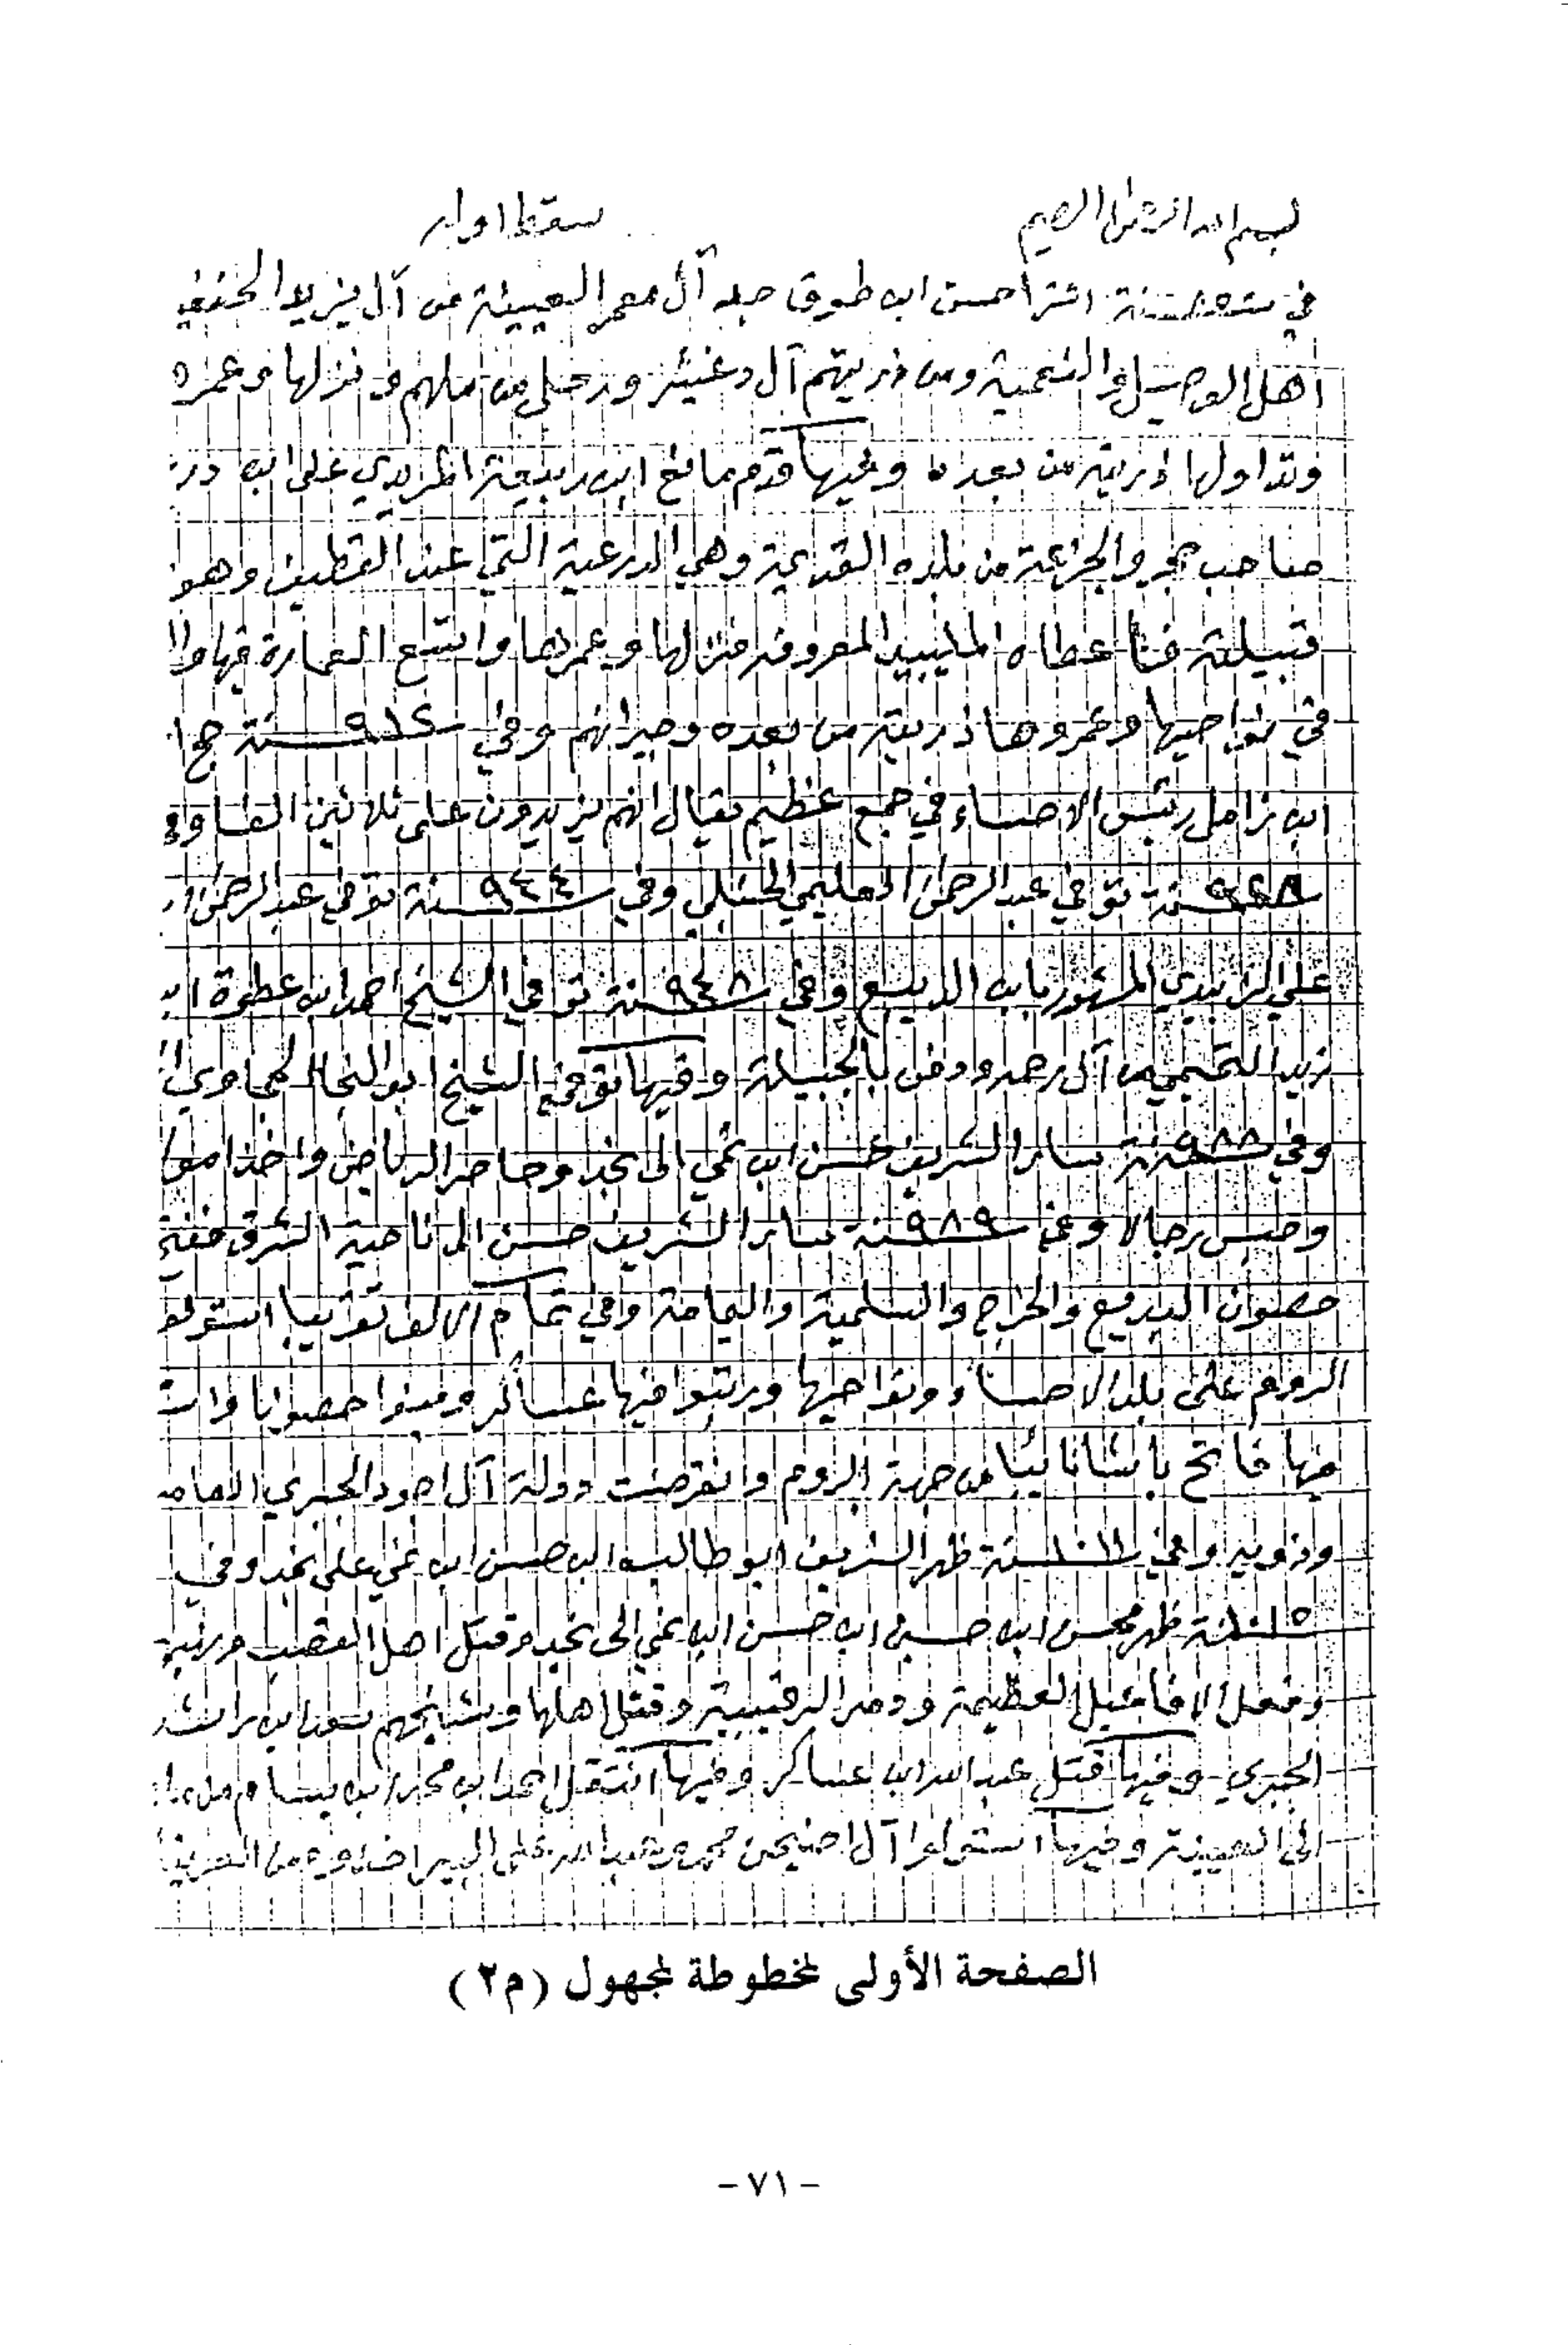 بسم الله الرحمن الرحيم سقط اوله
في سنة اشترا حسن ابن طوق جد آل معمر العيينة من آل يزيد الحنفيـ
اهل الوصيل والنعمية ومن ذريتهم آل دغيثر ورحل من ملهم ونزلها وعمره
وتداولها ذريته من بعده وفيها قدم مانع ابن ربيعة المريدي على ابن در
صاحب حجر والجزعة من بلده القديمة وهي الدرعية التي عند القطيف وهو
قبيلته فأعطاه المليبيد المعروفه فنزلها وعمرها واتسع العمارة فيها وا
في نواحيها وعمروها ذريته من بعده وجيرانهم وفي ٩١٢ سنة حج ا
ابن زامل رئيس الاحساء في جمع عظيم يقال انهم يزيدون على ثلاثين الفا وفي
سنة توفي عبد الرحمن العليمي الحنبلي وفي ٩٤٤ سنة توفي عبد الرحمن ا
علي الزبيدي المشهور بابن الديبع وفي ٩٤٨ سنة توفي الشيخ احمد ابن عطوة ابن
زيد التميمي من آل رحمه ودفن بالجبيلة وفيها توفي الشيخ ابو النجا الحجاوي ا
وفي ٩٨٨ سنة سار الشريف حسن ابن نمي الى نجد وحاصر الرياض واخذ اموا
وحبس رجالا وفي ٩٨٩ سنة سار الشريف حسن الى ناحية الشرق ففتح
حصون البديع والخرج والسلمية واليمامة وفي تمام الالف تقريبا استولو
الروم على بلد الاحساء ونواحيها ورتبوا فيها عساكر وبنوا حصونا واست
فيها فاتح باشا نايبا من جهة الروم وانقرضت دولة آل اجود الجبري العامر
وذويه وفي ١٠١١ سنة ظهر الشريف ابو طالب ابن حسن ابن نمي على نجد وفي
١٠١٥ سنة ظهر محسن ابن حسين ابن حسن ابن نمي الى نجد وقتل اهل القصب ونهبهـ
وفعل الافاعيل العظيمة ودمر الرقيبية وقتل اهلها وشيخهم سعد ابن راشد
الجبري وفيها قتل عبد الله ابن عساكر وفيها انتقل احمد ابن محمد ابن بسام من
الى العيينة وفيها استولوا آل احنيحن محمد وعبد الله على البير اخذوه من العرينا
الصفحة الأولى لمخطوطة لمجهول (م٢)
- ٧١ -